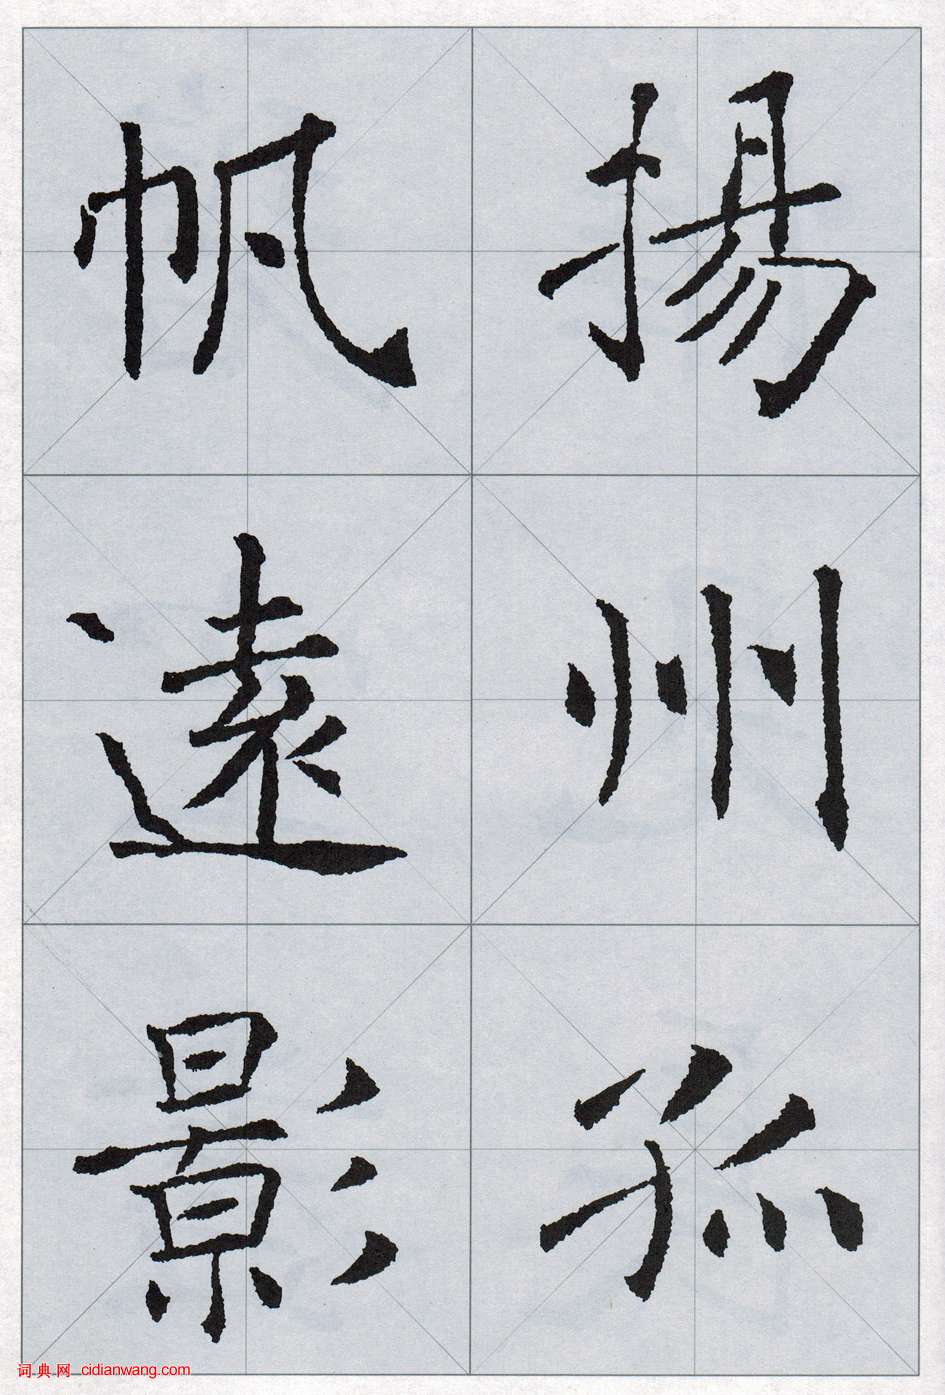 揚州孤
帆遠影
词典网 cidianwang.com